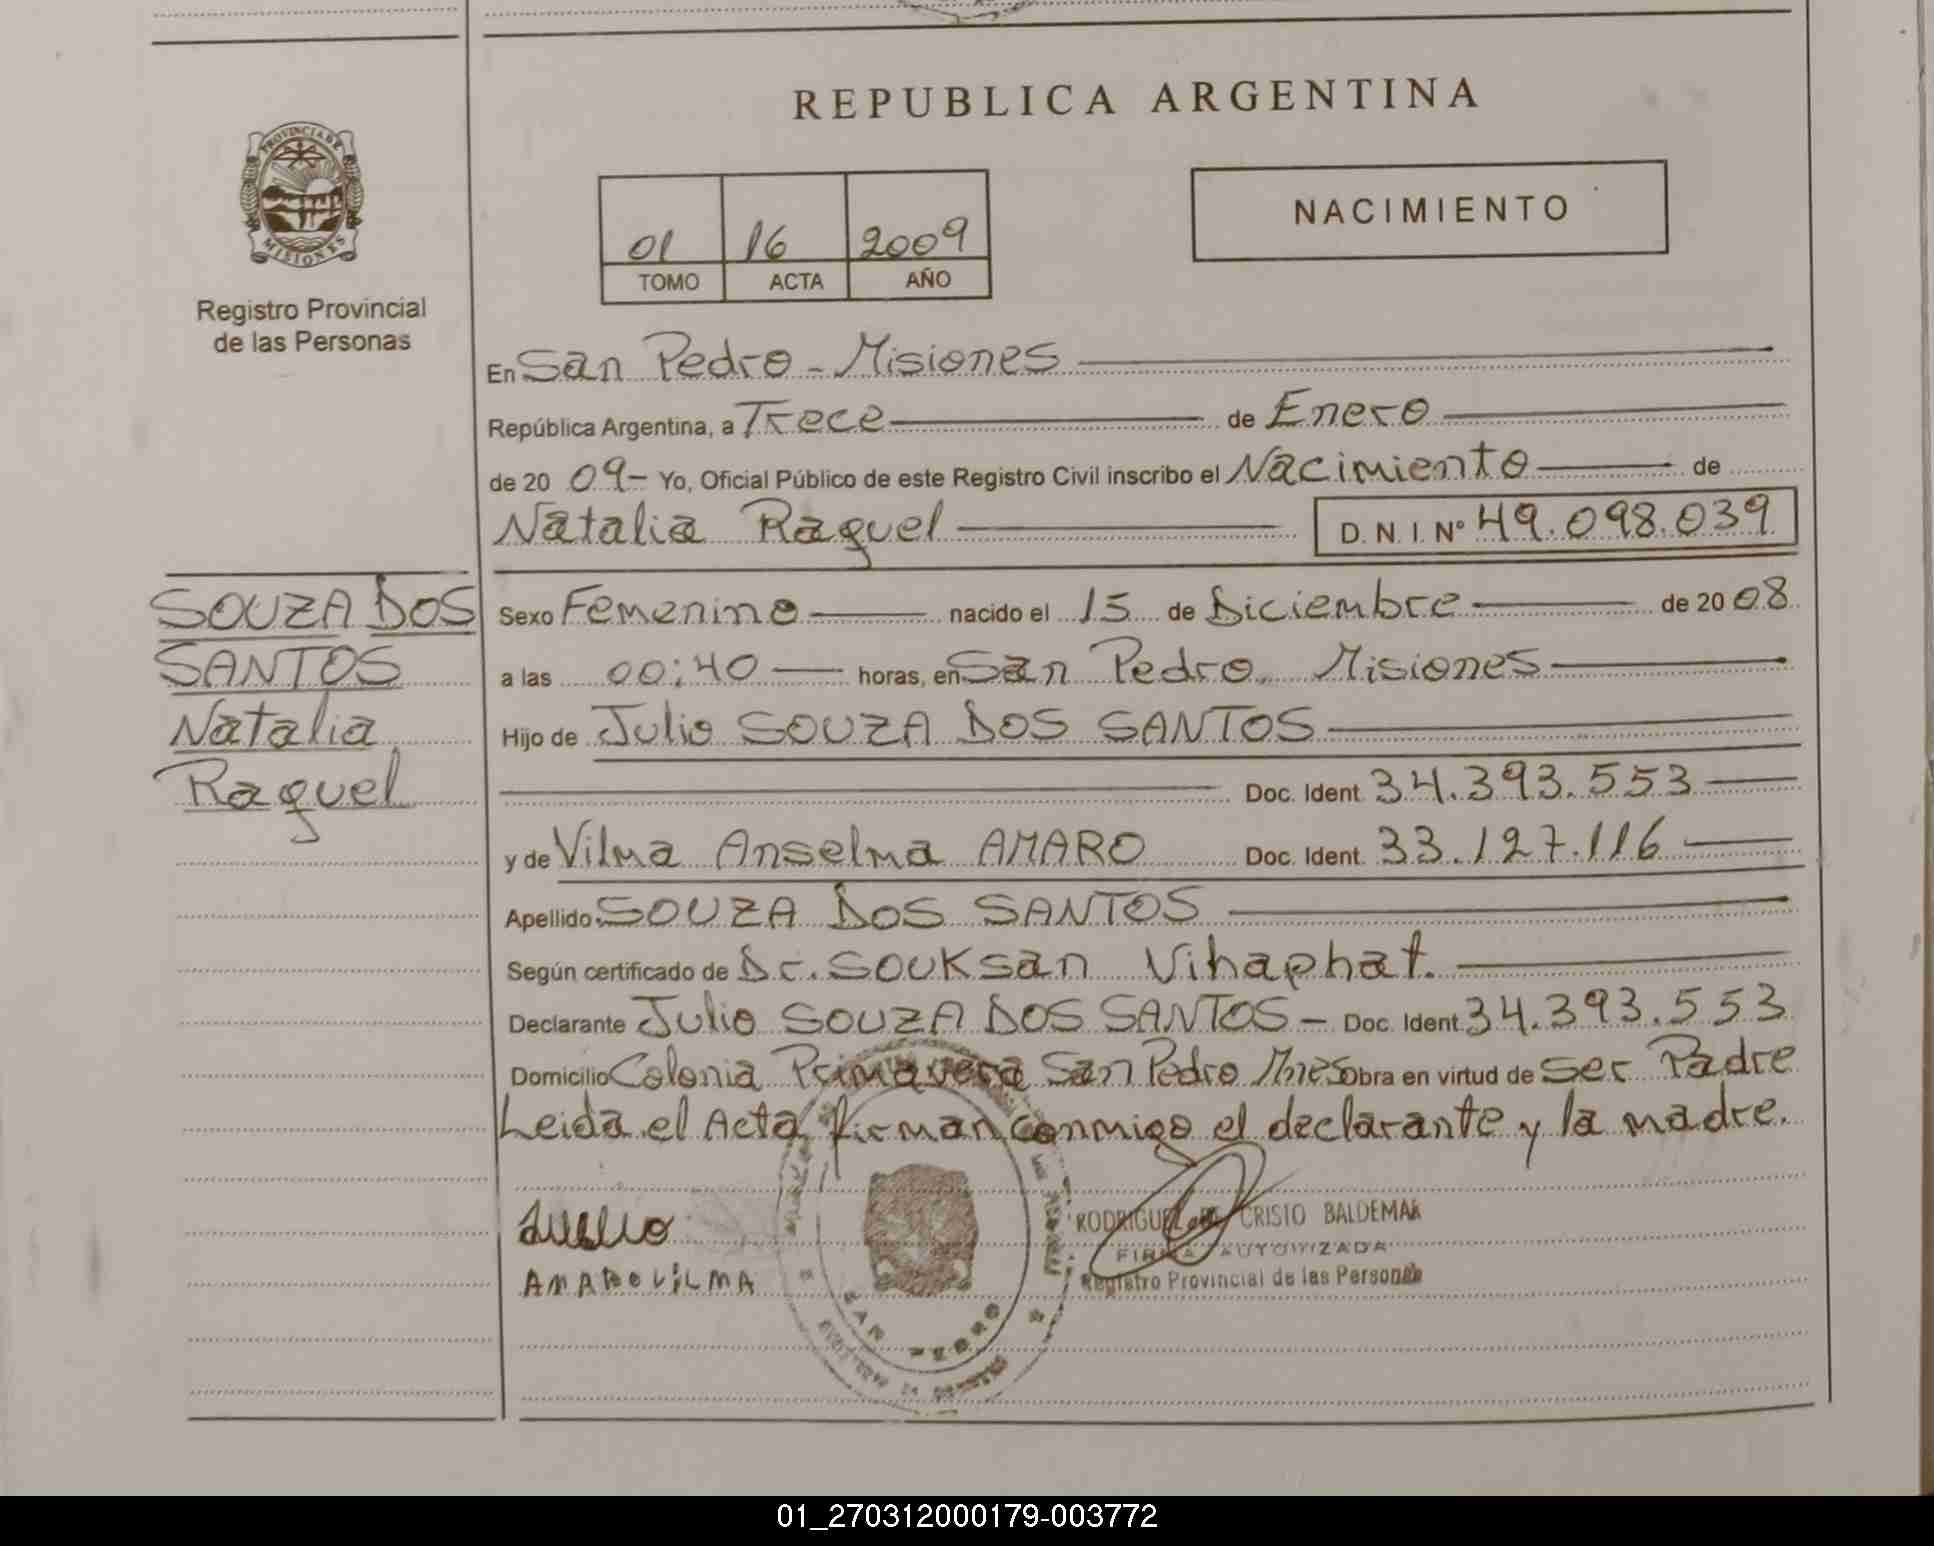 REPUBLICA ARGENTINA
PROVINCIA DE
MISIONES
Registro Provincial
de las Personas
01 16 2009
TOMO ACTA AÑO
NACIMIENTO
En San Pedro - Misiones
República Argentina, a Trece de Enero
de 20 09- Yo, Oficial Público de este Registro Civil inscribo el Nacimiento de
Natalia Raquel D. N. I. Nº 49.098.039
SOUZA DOS
SANTOS
Natalia
Raquel
Sexo Femenino nacido el 15 de Diciembre de 20 08
a las 00:40 horas, en San Pedro. Misiones
Hijo de Julio SOUZA DOS SANTOS
Doc. Ident. 34.393.553
y de Vilma Anselma AMARO Doc. Ident. 33.127.116
Apellido SOUZA DOS SANTOS
Según certificado de Dr. Souksan Vihaphat.
Declarante Julio SOUZA DOS SANTOS - Doc. Ident. 34.393.553
Domicilio Colonia Primavera San Pedro Mnes Obra en virtud de ser Padre
Leida el Acta, firman conmigo el declarante y la madre.
AMARO VILMA
RODRIGUEZ DE CRISTO BALDEMAR
FIRMA AUTORIZADA
Registro Provincial de las Personas
SAN PEDRO
01_270312000179-003772